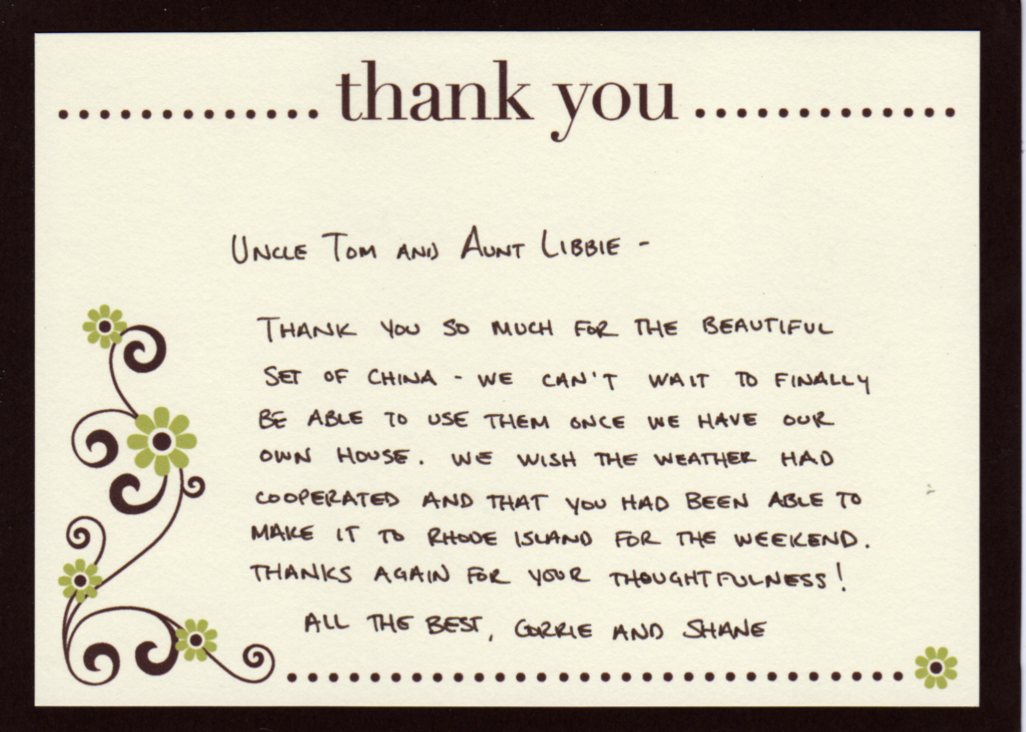 thank you
UNCLE TOM AND AUNT LIBBIE -
THANK YOU SO MUCH FOR THE BEAUTIFUL
SET OF CHINA - WE CAN'T WAIT TO FINALLY
BE ABLE TO USE THEM ONCE WE HAVE OUR
OWN HOUSE. WE WISH THE WEATHER HAD
COOPERATED AND THAT YOU HAD BEEN ABLE TO
MAKE IT TO RHODE ISLAND FOR THE WEEKEND.
THANKS AGAIN FOR YOUR THOUGHTFULNESS!
ALL THE BEST, CORRIE AND SHANE